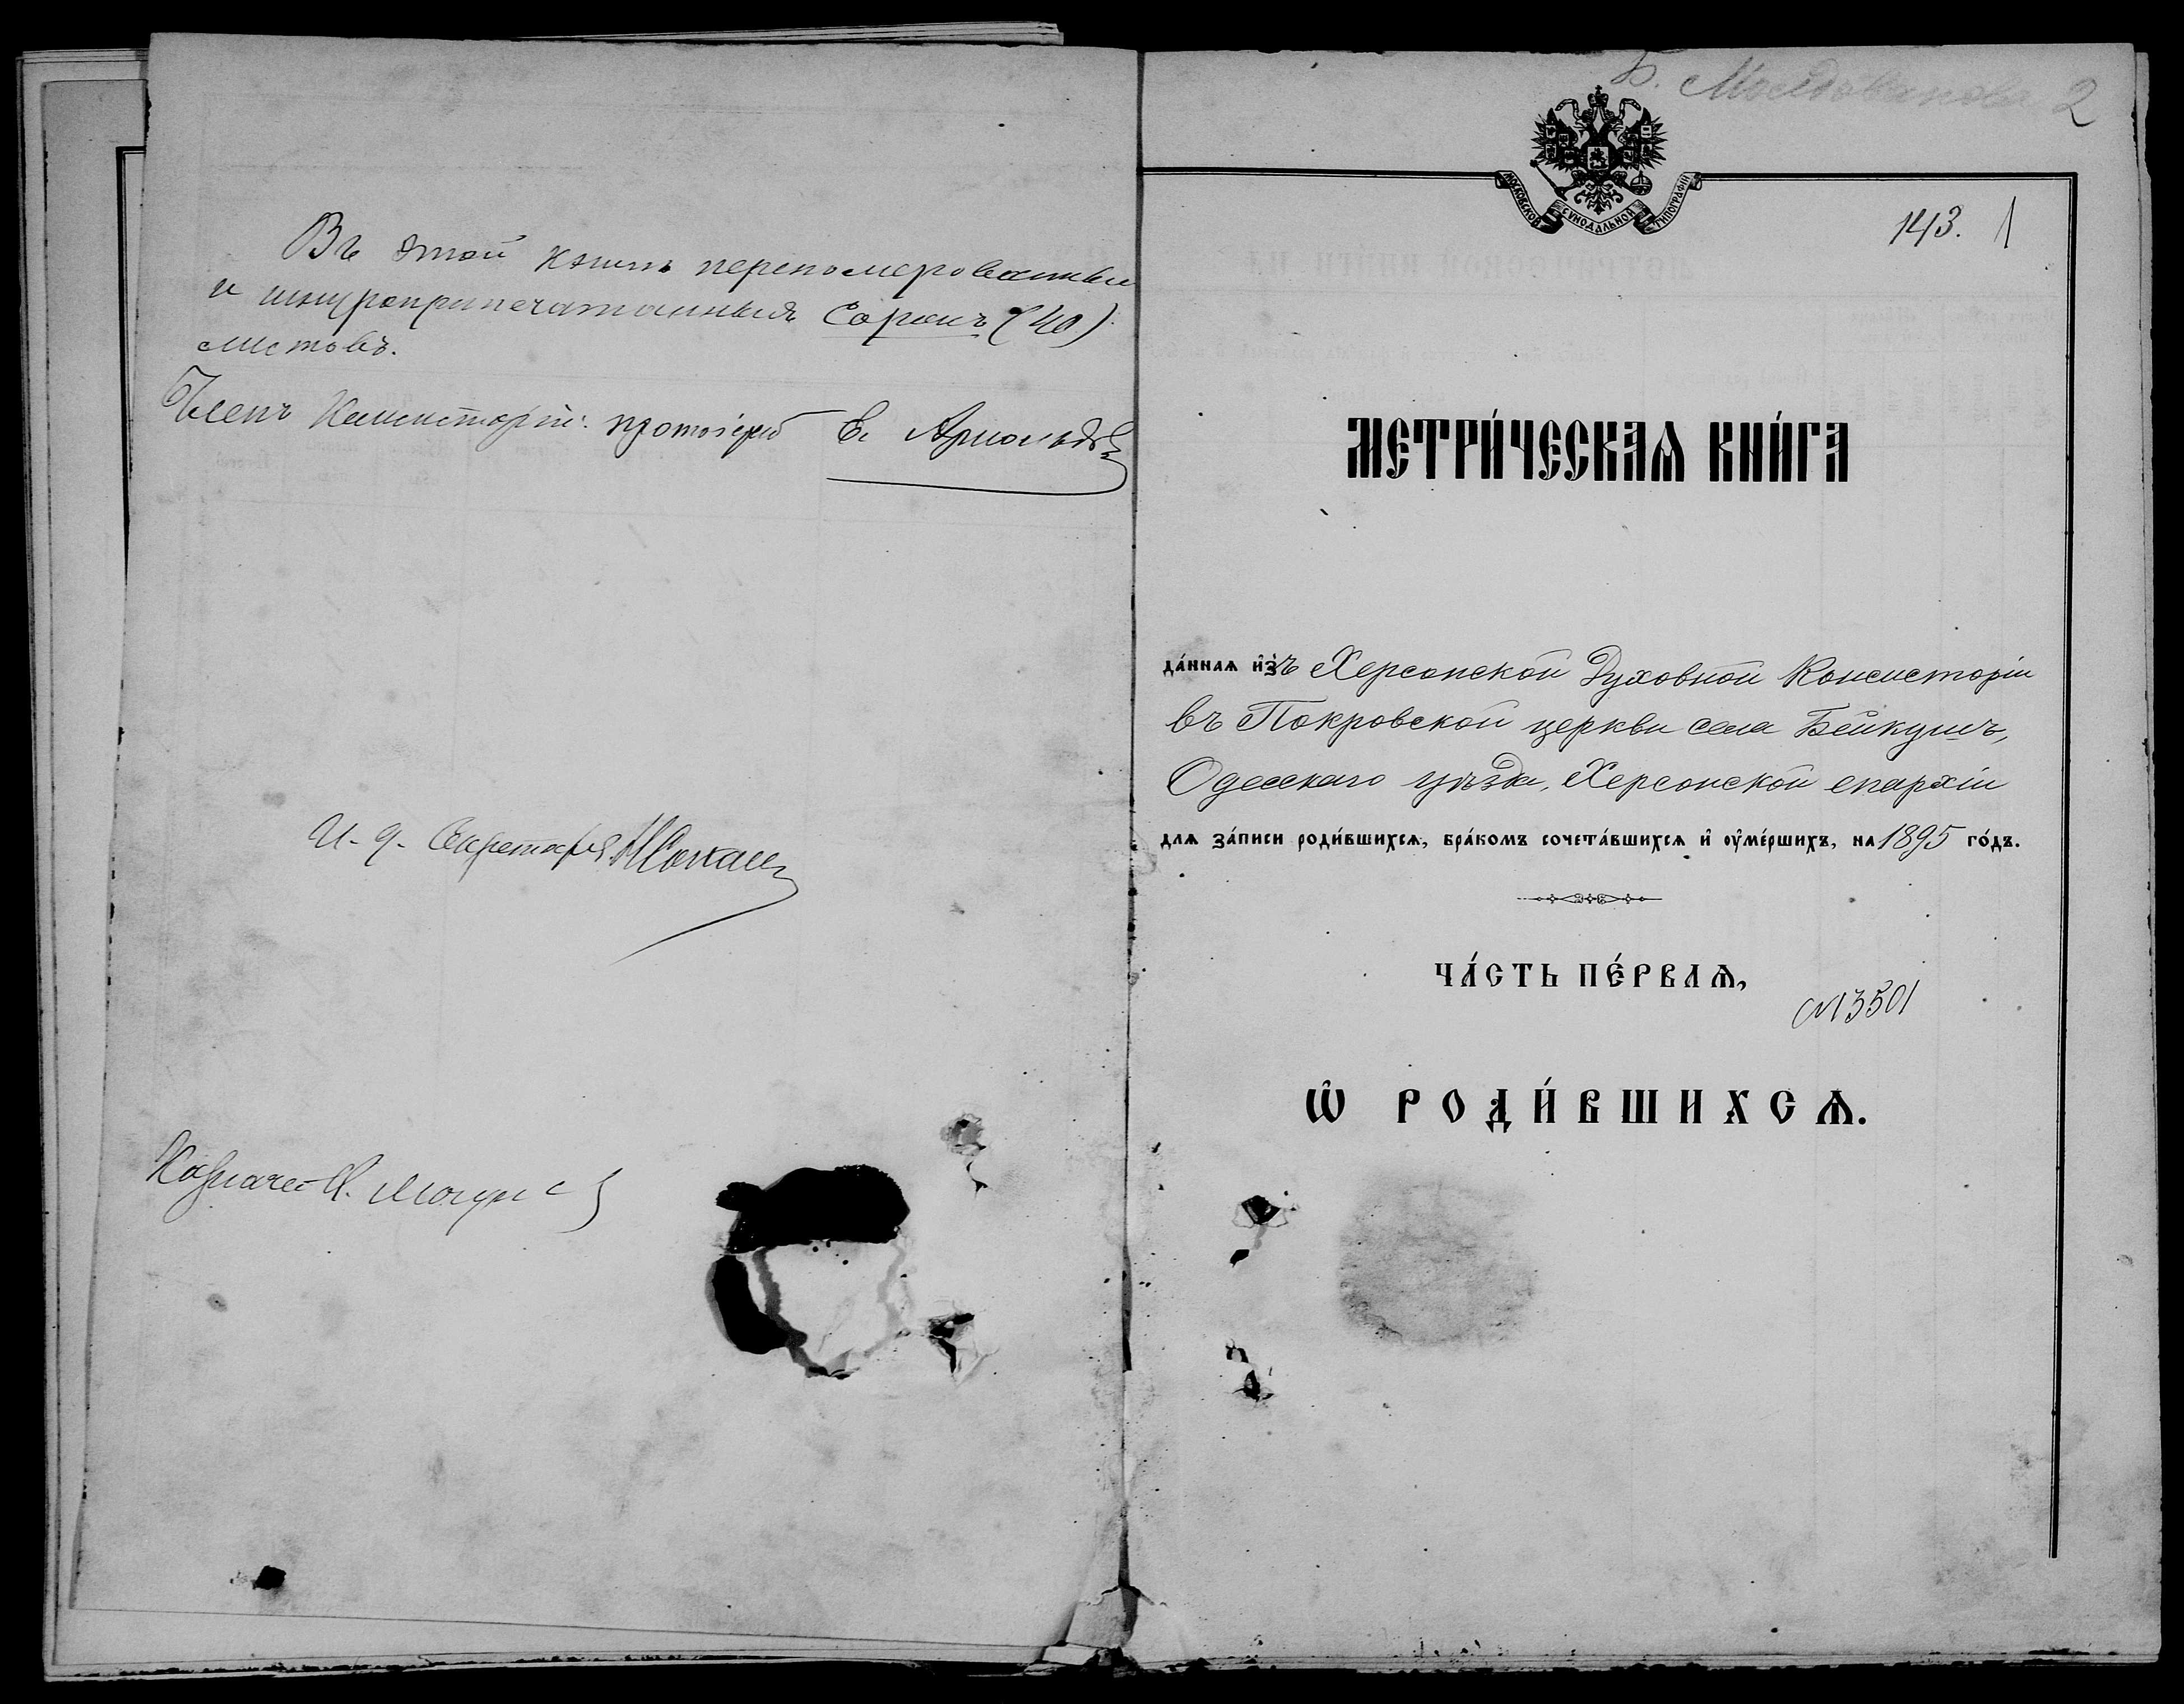 Въ этой книгѣ перенумерованныхъ
и шнуроприпечатанныхъ Сорокъ (40)
листовъ.
Членъ Консисторіи: протоіерей С. Арнольдовъ
И. д. Секретаря
Казначей
2
МОСКОВСКОЙ СѴНОДАЛЬНОЙ ТИПОГРАФІИ
143. 1
МЕТРИ́ЧЕСКАѦ КНИ́ГА
да́ннаѧ и҆зъ Херсонской Духовной Консисторіи
въ Покровской церкви села Бейкушъ,
Одесскаго уѣзда, Херсонской епархіи
для за́писи роди́вшихсѧ, бра́комъ сочета́вшихсѧ и҆ оу҆ме́ршихъ, на 1895 го́дъ.
ЧА́СТЬ ПЕ́РВАѦ,
№ 3501
Ѡ҆ РОДИ́ВШИХСѦ.